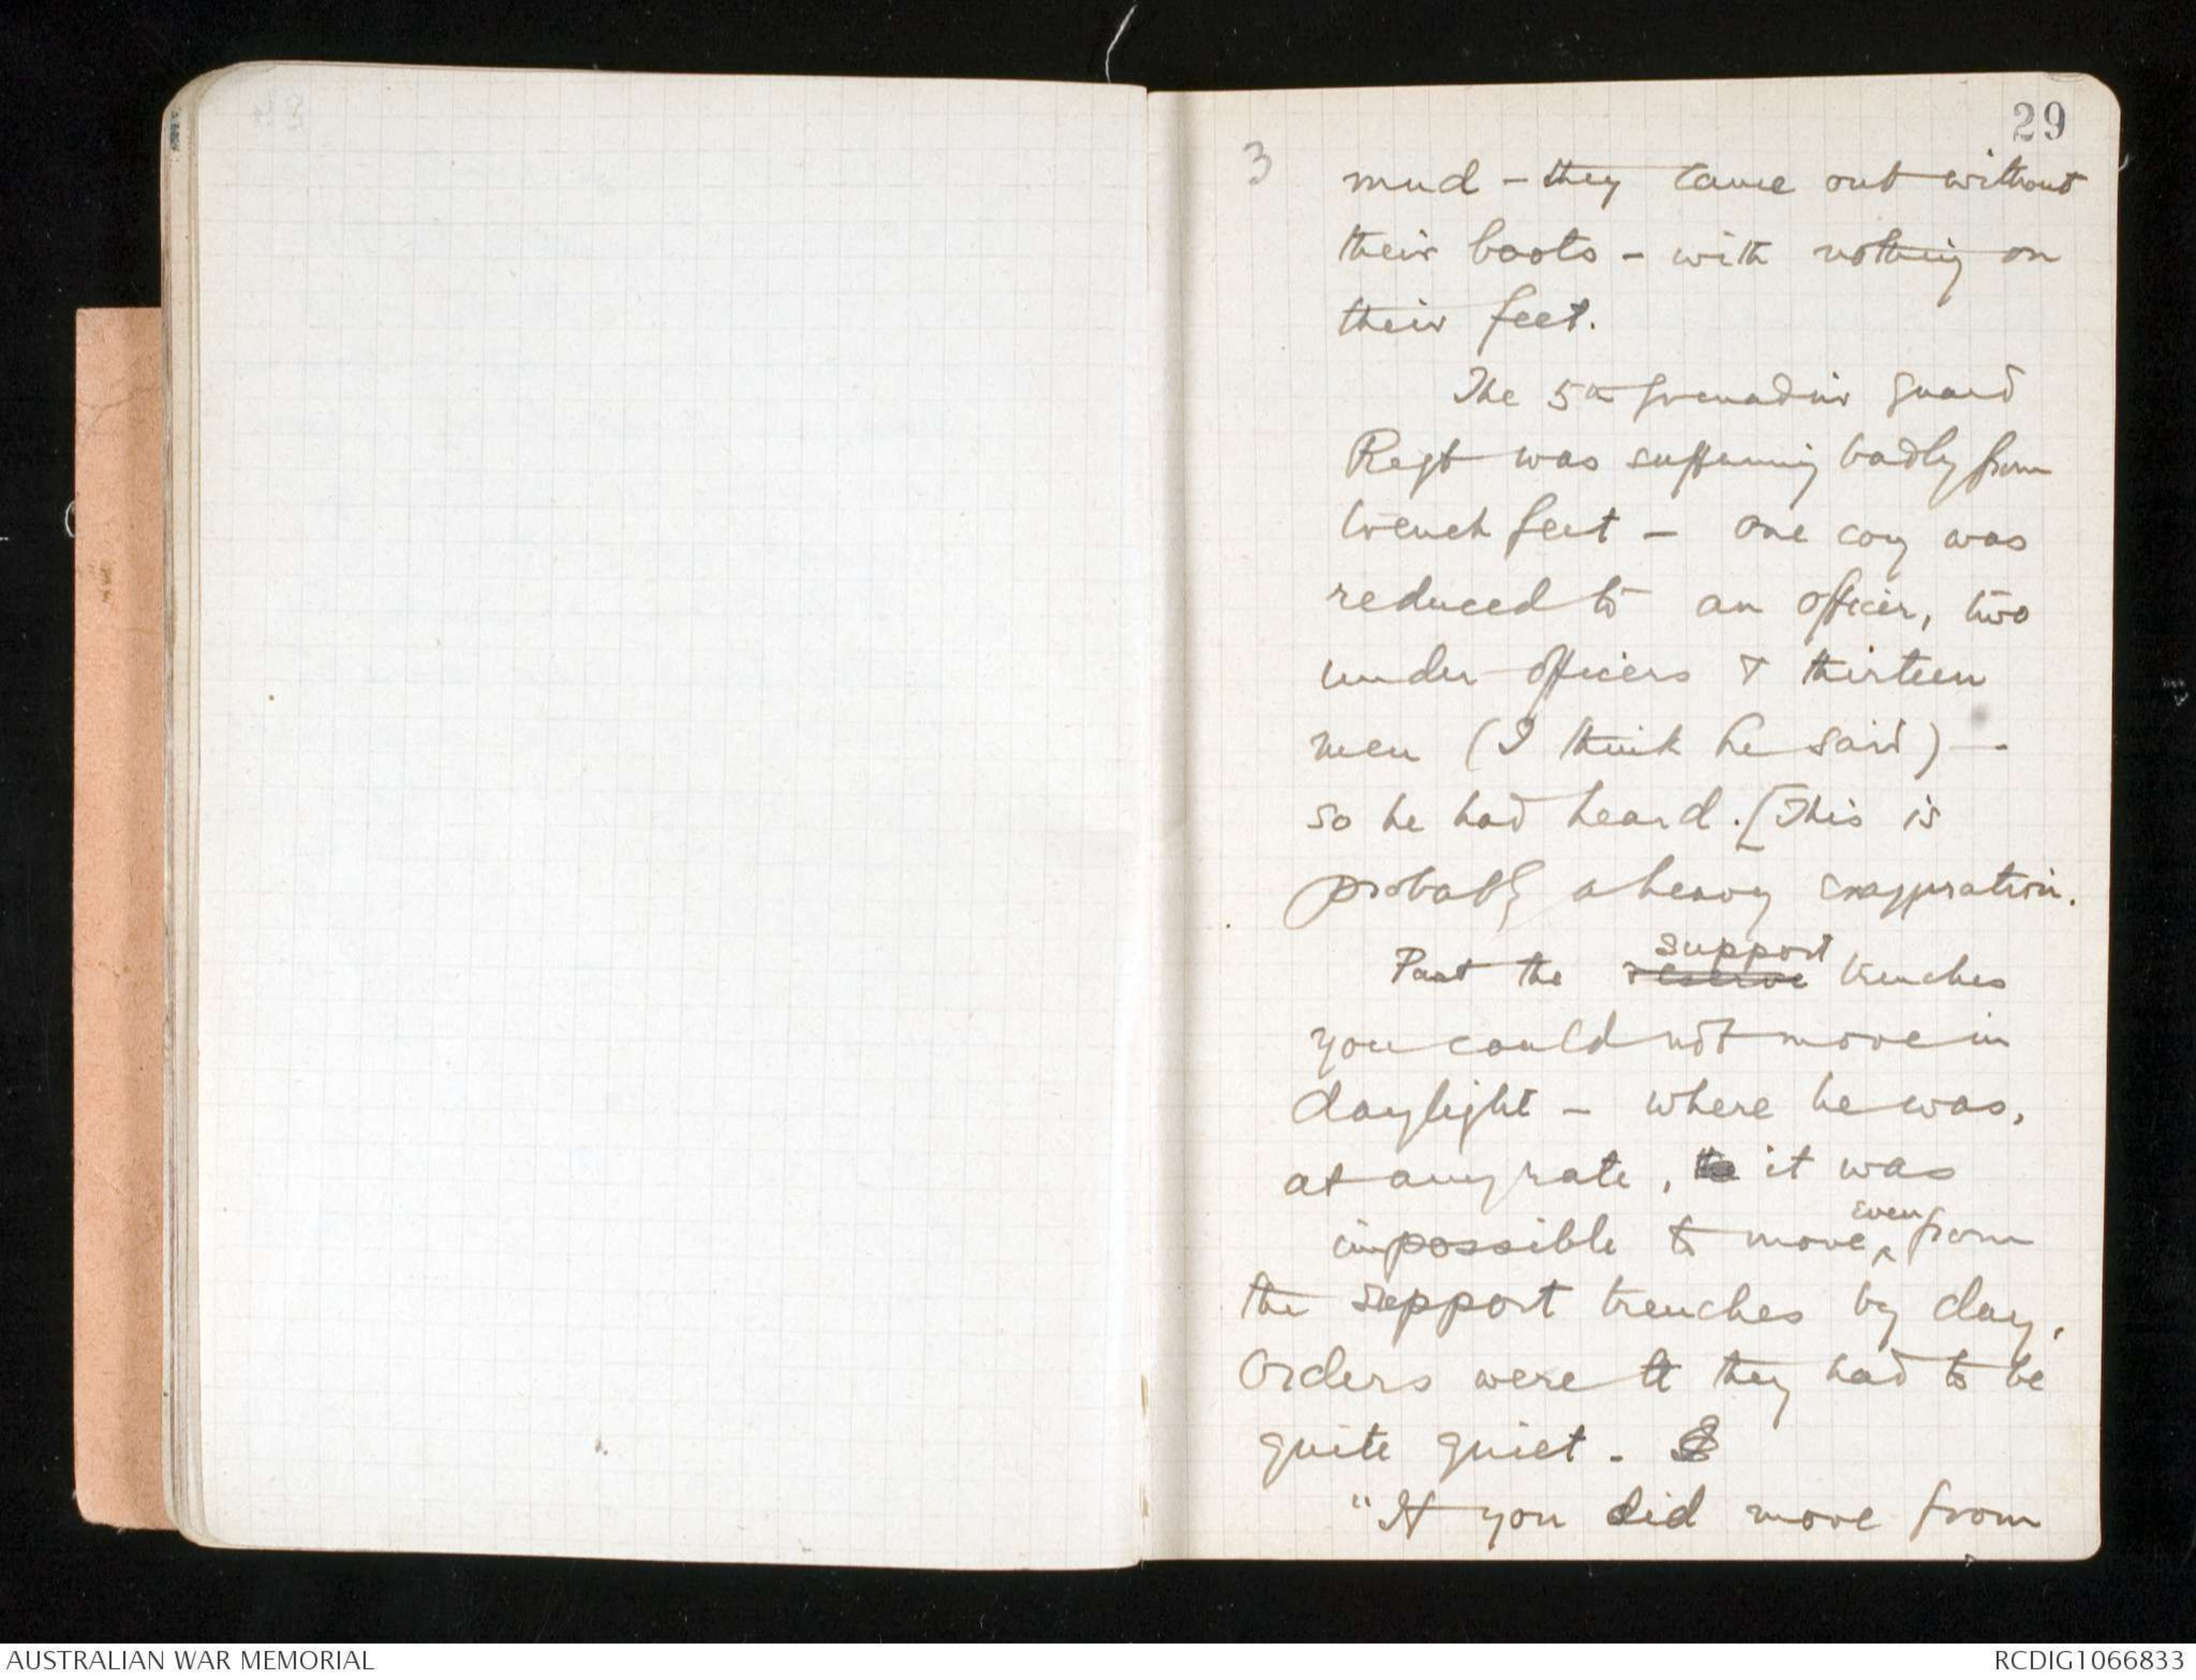 29
3
mud – they came out without
their boots – with nothing on
their feet.
The 5th Grenadier Guard
Regt was suffering badly from
trench feet – one coy was
reduced to an officer, two
under officers & thirteen
men (I think he said) –
so he had heard. [This is
probably a heavy exaggeration.
support
Past the reserve trenches
you could not move in
daylight – where he was,
at any rate, it was
even
impossible to move ^ from
the support trenches by day.
Orders were tt they had to be
quite quiet.
"If you did move from
AUSTRALIAN WAR MEMORIAL
RCDIG1066833